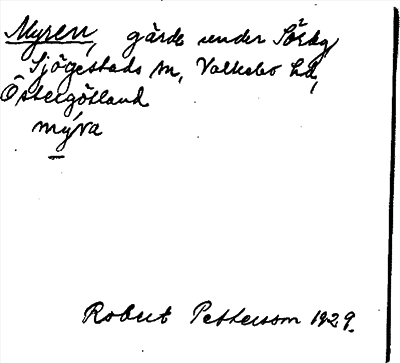 Myren, gärde under Söräng
Sjögestads sn, Valkebo hd,
Östergötland
mýra
Robert Petterson 1929.